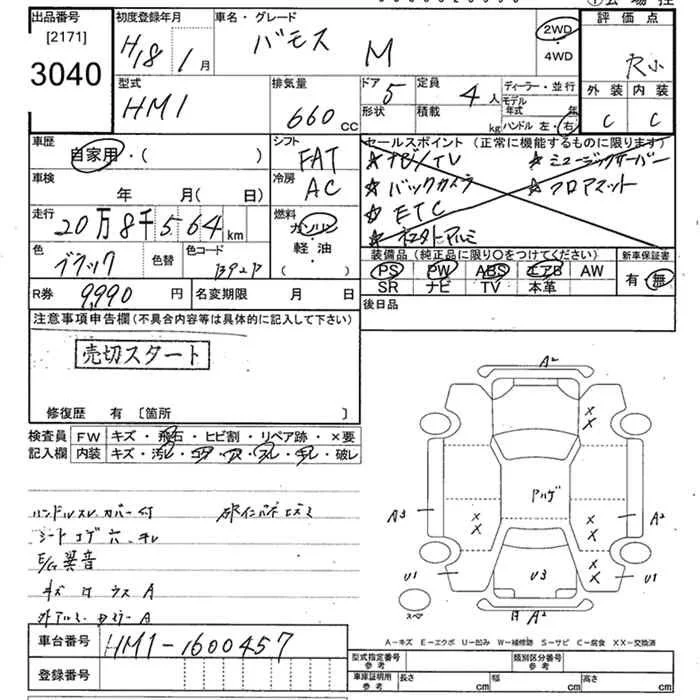 出品番号 初度登録年月 車名・グレード 2WD 評価点
[2171] H18 1月 バモス M ・4WD
3040 外装 内装
型式 排気量 ドア 5 定員 4人 ディーラー・並行
HM1 660 CC 形状 積載 kg モデル年式 年 C C
ハンドル 左・右
車歴 シフト セールスポイント (正常に機能するものに限ります)
自家用・( ) FAT ☆ナビ/TV ☆ミュージックサーバー
車検 年 月( 日) 冷房 AC ☆バックカメラ ☆フロアマット
☆ETC
走行 20万8千564 km 燃料 ガソリン・軽油 ( )
色 ブラック 色替 色コード
装備品 (純正品に限り○をつけてください) 新車保証書
PS PW ABS エアB AW 有・無
SR ナビ TV 本革
R券 9,990 円 名変期限 月 日 後日品
注意事項申告欄(不具合内容等は具体的に記入して下さい)
売切スタート
修復歴 有 〔箇所 〕
検査員 FW キズ・飛石・ヒビ割・リペア跡・×要
記入欄 内装 キズ・汚レ・コゲ・穴・スレ・キレ・破レ
ハンドルスレ カバー付
シートコゲ穴 キレ
E/G異音
A2
X X
アルゲ
A3 X X X X A2
U1 U3 X X U1
スペア A2
A-キズ E-エクボ U-凹み W-補修跡 S-サビ C-腐食 XX-交換済
車台番号 HM1-1600457
登録番号
型式指定番号 参考 類別区分番号 参考
車庫証明用 参考 長さ cm 幅 cm 高さ cm